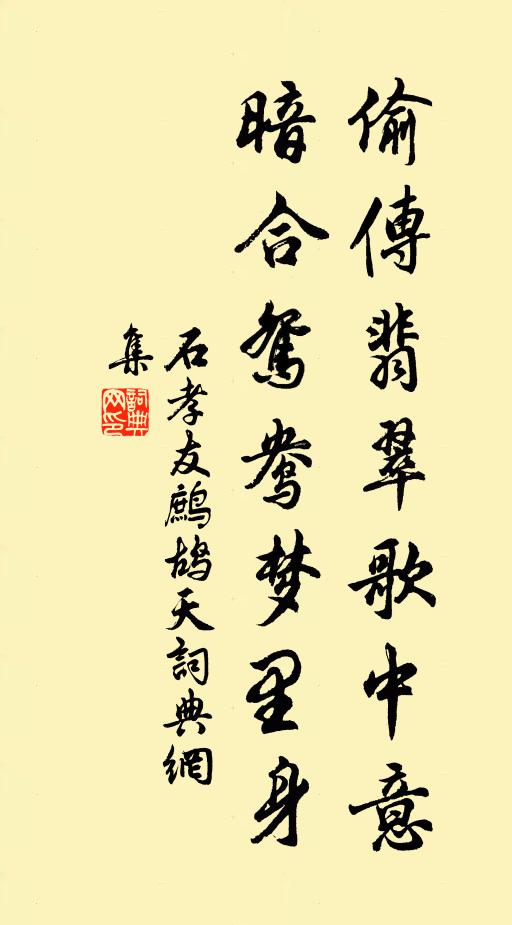 偷傳翡翠歌中意
暗合鴛鴦梦里身
石孝友鷓鴣天詞典網
集
詞典网印